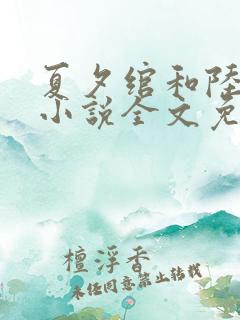 夏夕绾和陆
小说全文免
檀浮香
未经同意禁止转载